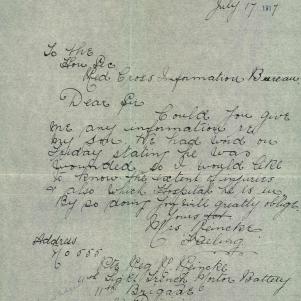 July 17 1917
To the
Hon Sec
Red Cross Information Bureau
Dear Sir
Could you give
me any information re
my son. We had word on
Friday stating he was
wounded so I would like
to know the extent of injuries
& also which Hospital he is in
By so doing you will greatly oblige
Yours
Mrs Rencke
Address
Pte Reg Rencke
Light Trench Mortar Battery
11th Brigade